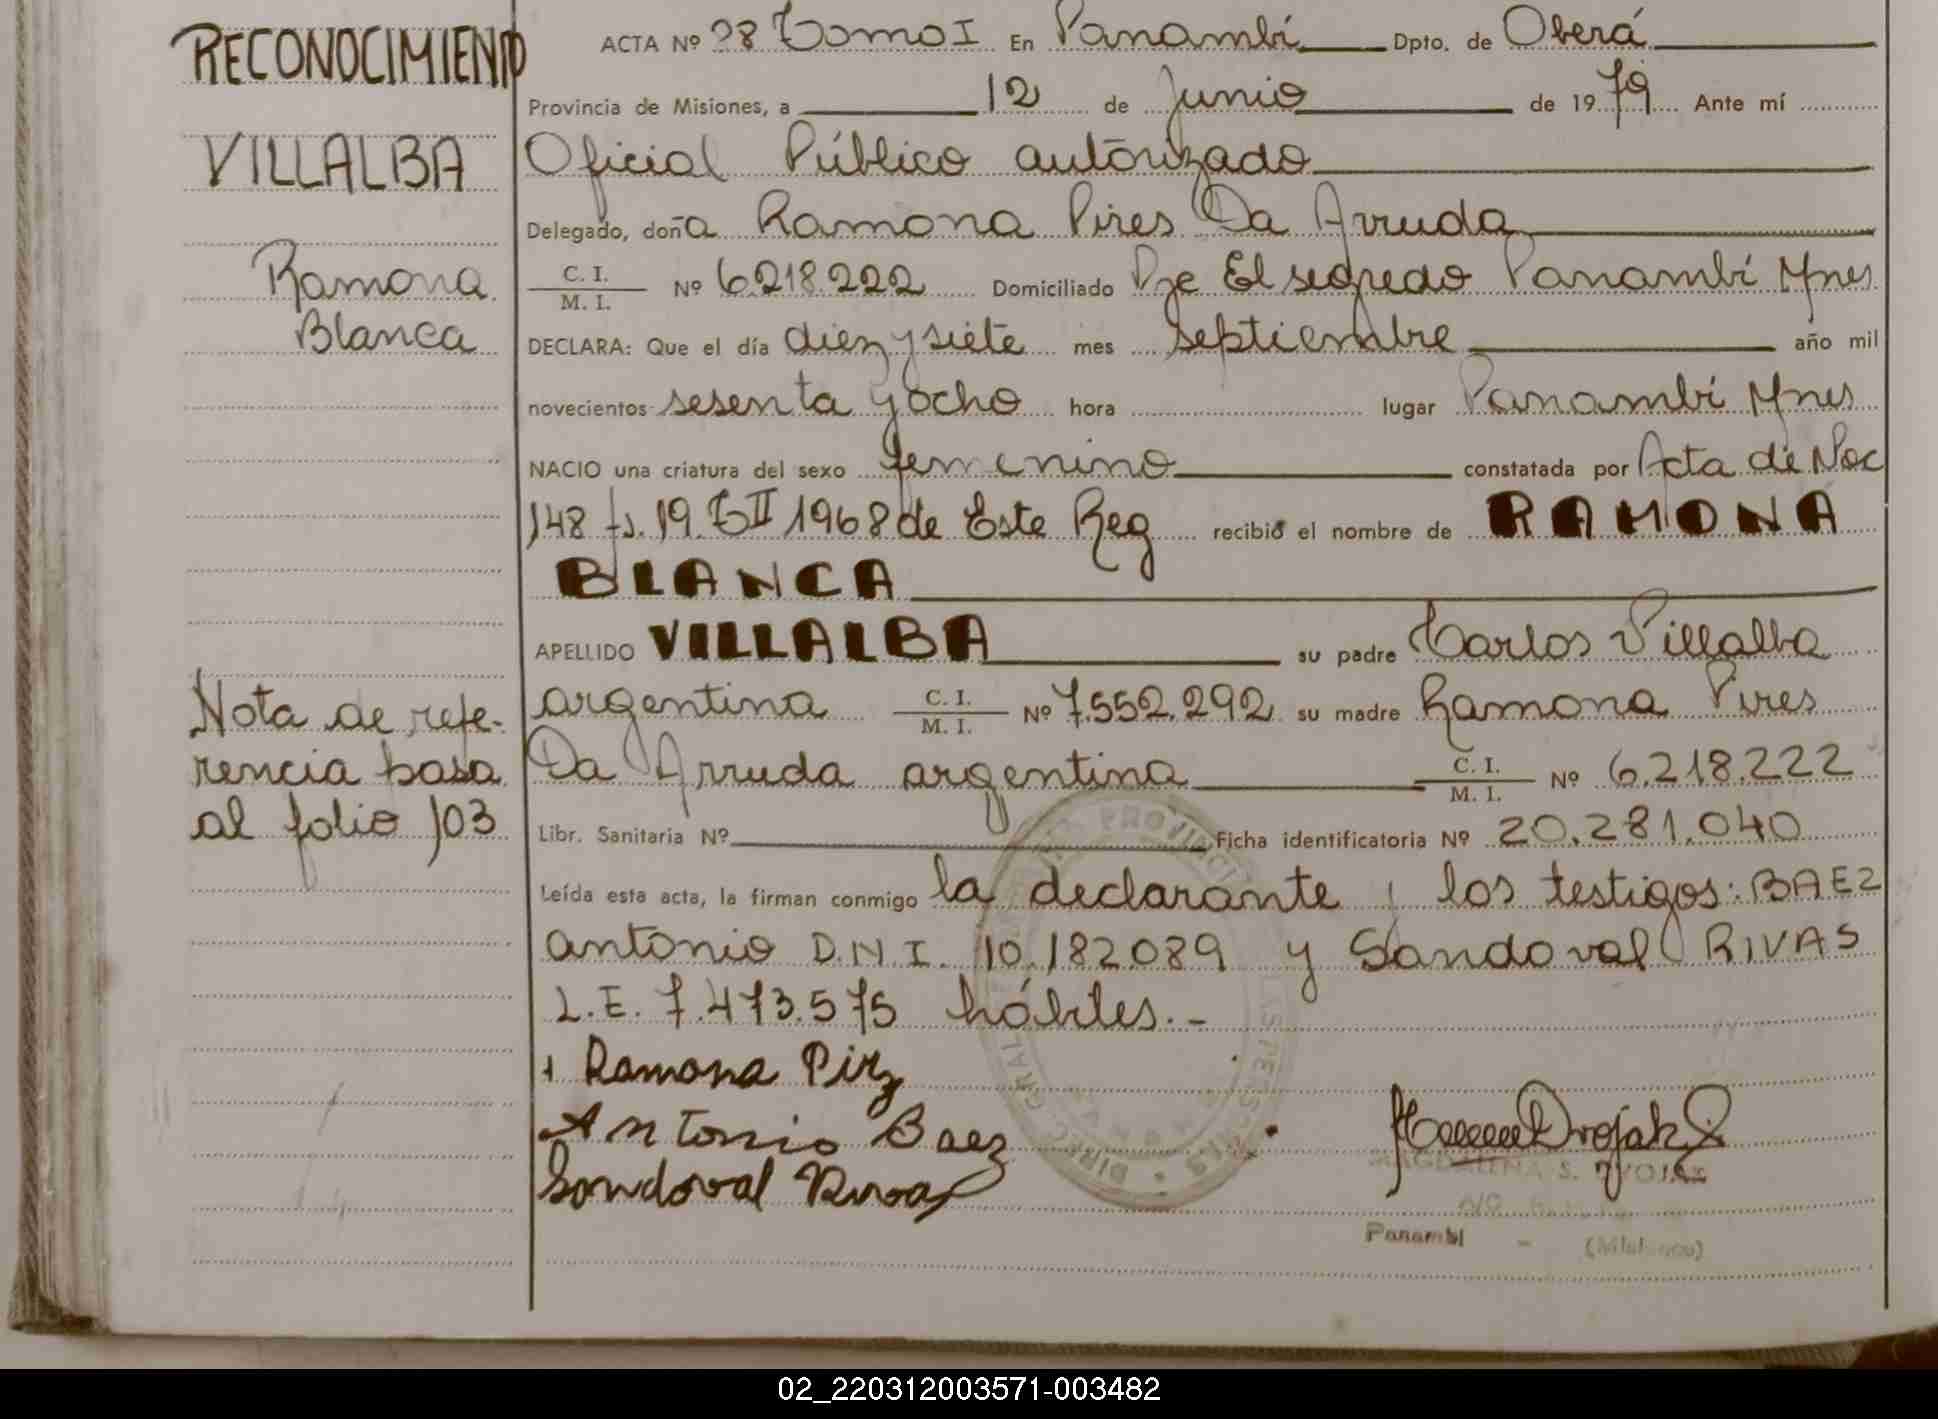 RECONOCIMIENTO
VILLALBA
Ramona
Blanca
Nota de refe-
rencia pasa
al folio 103
ACTA Nº 98 Tomo I En Panambí Dpto. de Oberá
Provincia de Misiones, a 12 de Junio de 1979 Ante mí
Oficial Público autorizado
Delegado, doña Ramona Pires Da Arruda
C. I. / M. I. Nº 6.218.222 Domiciliado Pje El segredo Panambí Mnes
DECLARA: Que el día diez y siete mes septiembre año mil
novecientos sesenta y ocho hora lugar Panambí Mnes
NACIO una criatura del sexo femenino constatada por Acta de Nac
148 fs. 19. T II 1968 de Este Reg recibió el nombre de RAMONA
BLANCA
APELLIDO VILLALBA su padre Carlos Villalba
argentina C. I. / M. I. Nº 7.552.292 su madre Ramona Pires
Da Arruda argentina C. I. / M. I. Nº 6.218.222
Libr. Sanitaria Nº Ficha identificatoria Nº 20.281.040
Leída esta acta, la firman conmigo la declarante y los testigos: BAEZ
antonio D.N.I. 10.182.089 y Sandoval RIVAS
L.E. 7.473.575 hábiles.-
Ramona Pirz
Antonio Baez
Sandoval Rivas
MAGDALENA S. DVOJAK
Panambí - (Misiones)
02_220312003571-003482